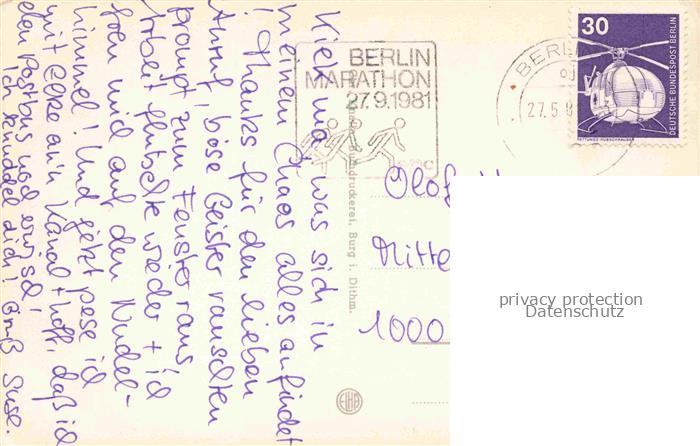 Kiek mal was sich in
meinem Chaos alles anfindet
! Thanks für den lieben
Anruf, böse Geister rauschten
prompt zum Fenster raus,
Arbeit flutschte wieder + id
und auf den Nudel-
himmel! Und jetzt pese id
mit Elke an'n Kanal + hoff, daß id
den Postbus nod erwisd!
Ich knuddel dich! Gruß Suse.
BERLIN
MARATHON
27.9.1981
BERLIN
27.5.8
30
DEUTSCHE BUNDESPOST BERLIN
RETTUNGS-HUBSCHRAUBER
Rundruckerei, Burg i. Dithm.
Olof
Mitte
1000
EIHB
privacy protection
Datenschutz